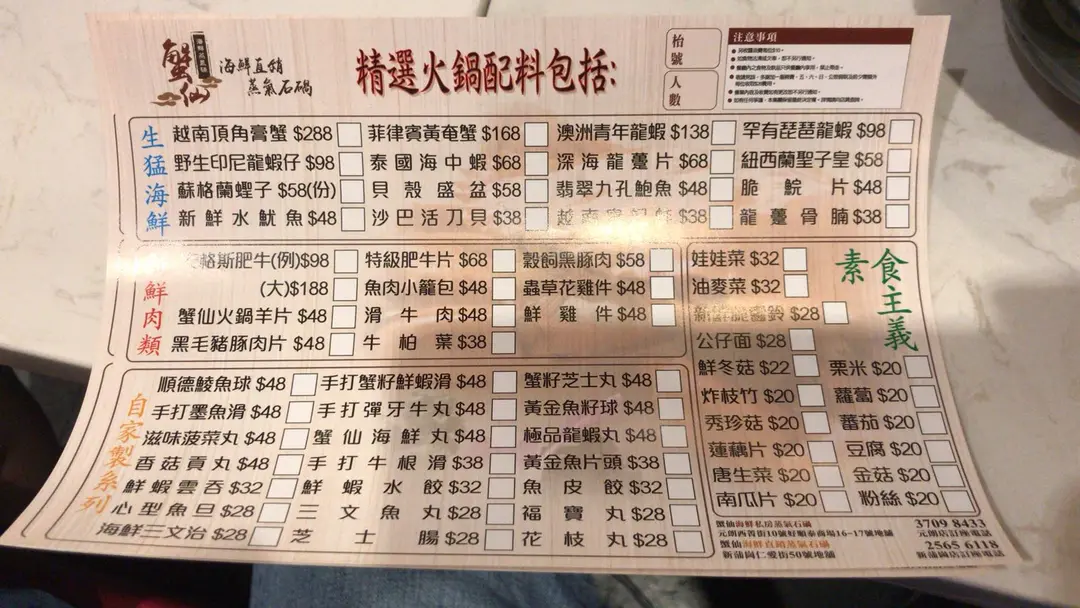 蟹仙
海鮮直銷
蒸氣石鍋
精選火鍋配料包括:
枱號
人數
注意事項
生猛海鮮
越南頂角膏蟹 $288 菲律賓黃奄蟹 $168 澳洲青年龍蝦 $138 罕有琵琶龍蝦 $98
野生印尼龍蝦仔 $98 泰國海中蝦 $68 深海龍躉片 $68 紐西蘭聖子皇 $58
蘇格蘭蟶子 $58(份) 貝殼盛盆 $58 翡翠九孔鮑魚 $48 脆鯇片 $48
新鮮水魷魚 $48 沙巴活刀貝 $38 越南 $38 龍躉骨腩 $38
鮮肉類
格斯肥牛(例)$98 特級肥牛片 $68 穀飼黑豚肉 $58
(大)$188 魚肉小籠包 $48 蟲草花雞件 $48
蟹仙火鍋羊片 $48 滑牛肉 $48 鮮雞件 $48
黑毛豬豚肉片 $48 牛柏葉 $38
素食主義
娃娃菜 $32
油麥菜 $32
新鮮腐 鈴 $28
公仔面 $28
鮮冬菇 $22 粟米 $20
炸枝竹 $20 蘿蔔 $20
秀珍菇 $20 蕃茄 $20
蓮藕片 $20 豆腐 $20
唐生菜 $20 金菇 $20
南瓜片 $20 粉絲 $20
自家製系列
順德鯪魚球 $48 手打蟹籽鮮蝦滑 $48 蟹籽芝士丸 $48
手打墨魚滑 $48 手打彈牙牛丸 $48 黃金魚籽球 $48
滋味菠菜丸 $48 蟹仙海鮮丸 $48 極品龍蝦丸 $48
香菇貢丸 $48 手打牛根滑 $38 黃金魚片頭 $38
鮮蝦雲吞 $32 鮮蝦水餃 $32 魚皮餃 $32
心型魚旦 $28 三文魚丸 $28 福寶丸 $28
海鮮三文治 $28 芝士腸 $28 花枝丸 $28
蟹仙海鮮私房蒸氣石鍋 3709 8433
元朗西菁街10號好順泰商場16-17號地舖 元朗店訂座電話
蟹仙海鮮直銷蒸氣石鍋 2565 6118
新蒲崗仁愛街50號地舖 新蒲崗店訂座電話